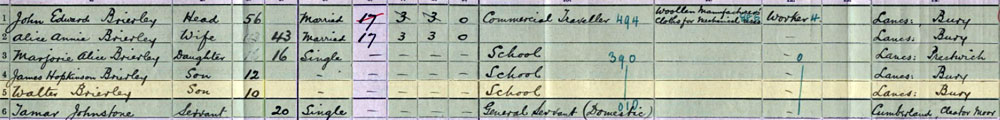 1 John Edward Brierley Head 56 Married 17 3 3 0 Commercial Traveller 494 Woollen Manufacturers Cloths for Mechanical Worker Lancs: Bury
2 Alice Annie Brierley Wife 43 Married 17 3 3 0 — Lancs: Bury
3 Marjorie Alice Brierley Daughter 16 Single — — — — School 390 0 Lancs: Prestwich
4 James Hopkinson Brierley Son 12 — — — — — School — Lancs: Bury
5 Walter Brierley Son 10 — — — — — School Lancs: Bury
6 Tamar Johnstone Servant 20 Single — — — — General Servant (Domestic) — — Cumberland Cleator Moor